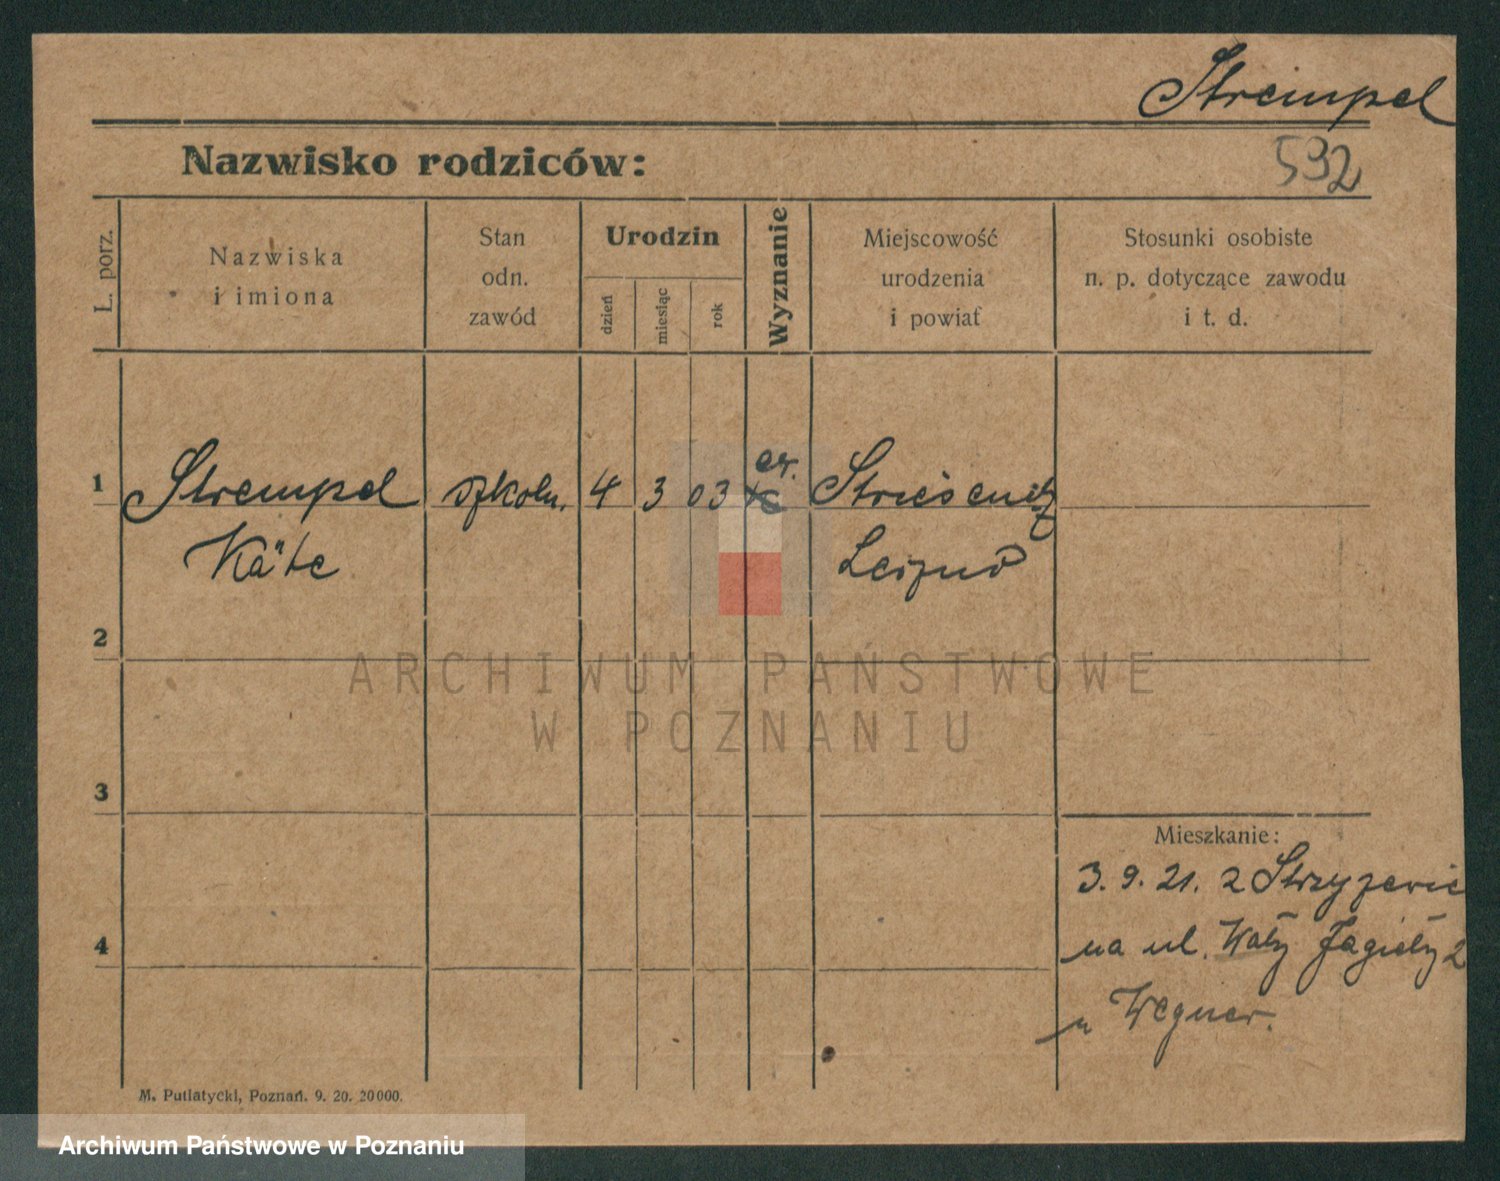 Strempel
Nazwisko rodziców:
532
L. porz.
Nazwiska
i imiona
Stan
odn.
zawód
Urodzin
dzień
miesiąc
rok
Wyznanie
Miejscowość
urodzenia
i powiat
Stosunki osobiste
n. p. dotyczące zawodu
i t. d.
1
Strempel szkoln. 4 3 03 ew.
Käte
2
3
4
Mieszkanie:
3. 9. 21. z
na ul. Wały Jagiełły 2
u Wegner.
M. Putiatycki, Poznań. 9. 20. 20000.
ARCHIWUM PAŃSTWOWE
W POZNANIU
Archiwum Państwowe w Poznaniu